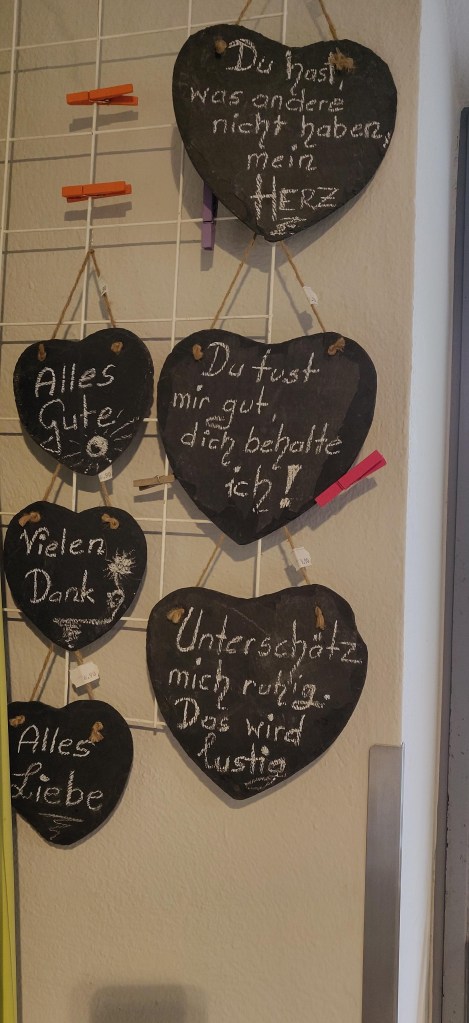 Du hast,
was andere
nicht haben,
mein
HERZ
Du tust
mir gut,
dich behalte
ich!
Unterschätz
mich ruhig.
Das wird
lustig
Alles
Gute
Vielen
Dank
Alles
Liebe